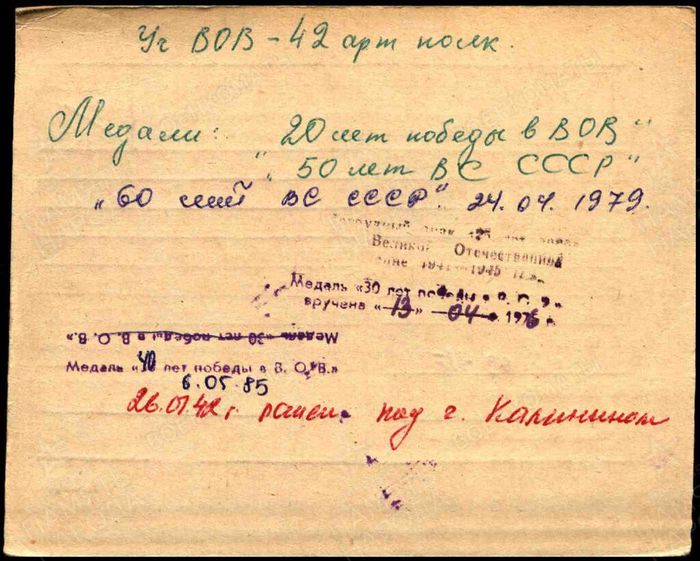 Уч ВОВ - 42 арт полк.
Медали: "20 лет победы в ВОВ"
"50 лет ВС СССР"
"60 лет ВС СССР". 24.04.1979.
Нагрудный знак «25 лет
Великой Отечественной
войне 1941-1945 гг.»
Медаль «30 лет победы в В. О. В.»
вручена «13» 04 1976 г.
Медаль «30 лет победы в В. О. В.»
Медаль «40 лет победы в В. О. В.»
6.05.85
26.01.42 г. ранен под г. Калинином